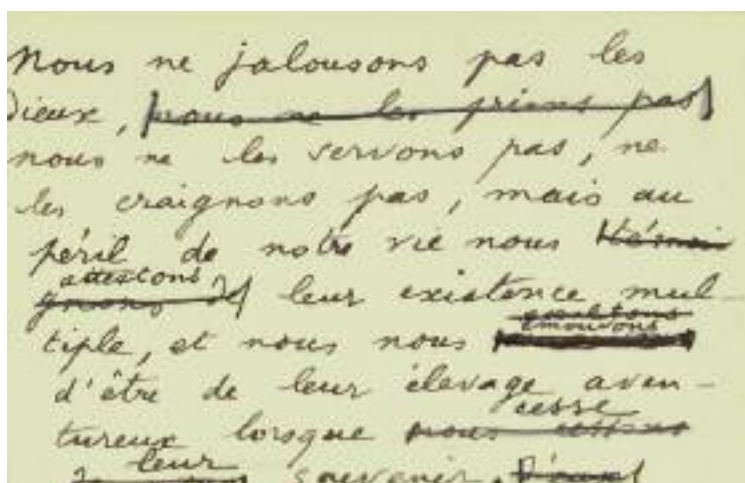 Nous ne jalousons pas les
Dieux, nous ne les prions pas
nous ne les servons pas, ne
les craignons pas, mais au
péril de notre vie nous témoi
attestons
gnons de leur existence mul-
exultons
émouvons
tiple, et nous nous
d'être de leur élevage aven-
cesse
tureux lorsque nous cessons
leur
souvenir.